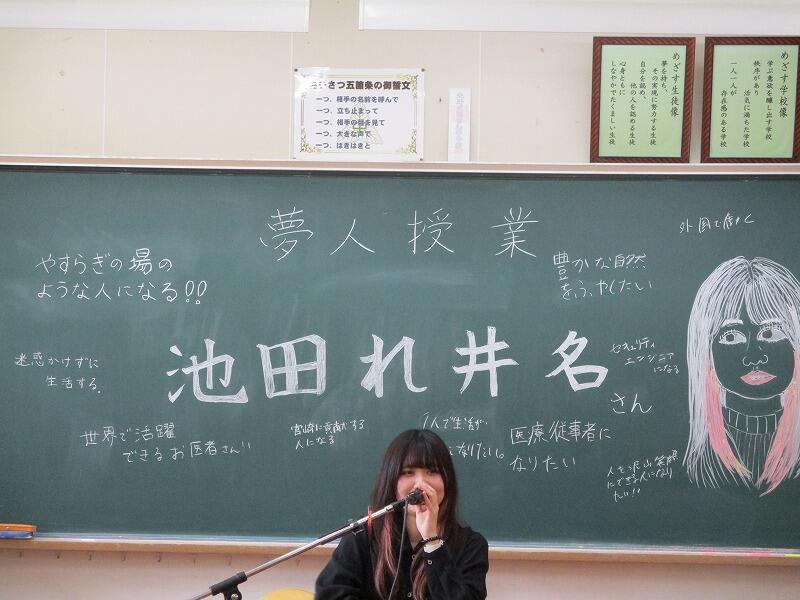 あいさつ五箇条の御誓文
一つ、相手の名前を呼んで
一つ、立ち止まって
一つ、相手の目を見て
一つ、大きな声で
一つ、はきはきと
めざす生徒像
夢を持ち、
その実現に努力する生徒
自分を認め、
他の人を認める生徒
心身ともに
しなやかでたくましい生徒
めざす学校像
学ぶ意欲を醸し出す学校
秩序があり
活気に満ちた学校
一人一人が
存在感のある学校
夢人授業
やすらぎの場の
ような人になる!!
豊かな自然
をふやしたい
外国で働く
池田れ井名
さん
セキュリティ
エンジニア
になる
迷惑かけずに
生活する。
世界で活躍
できるお医者さん
宮崎に貢献する
人になる
1人で生活が
なりたい。
医療従事者に
なりたい
人を沢山笑顔
にできる人になり
たい!!